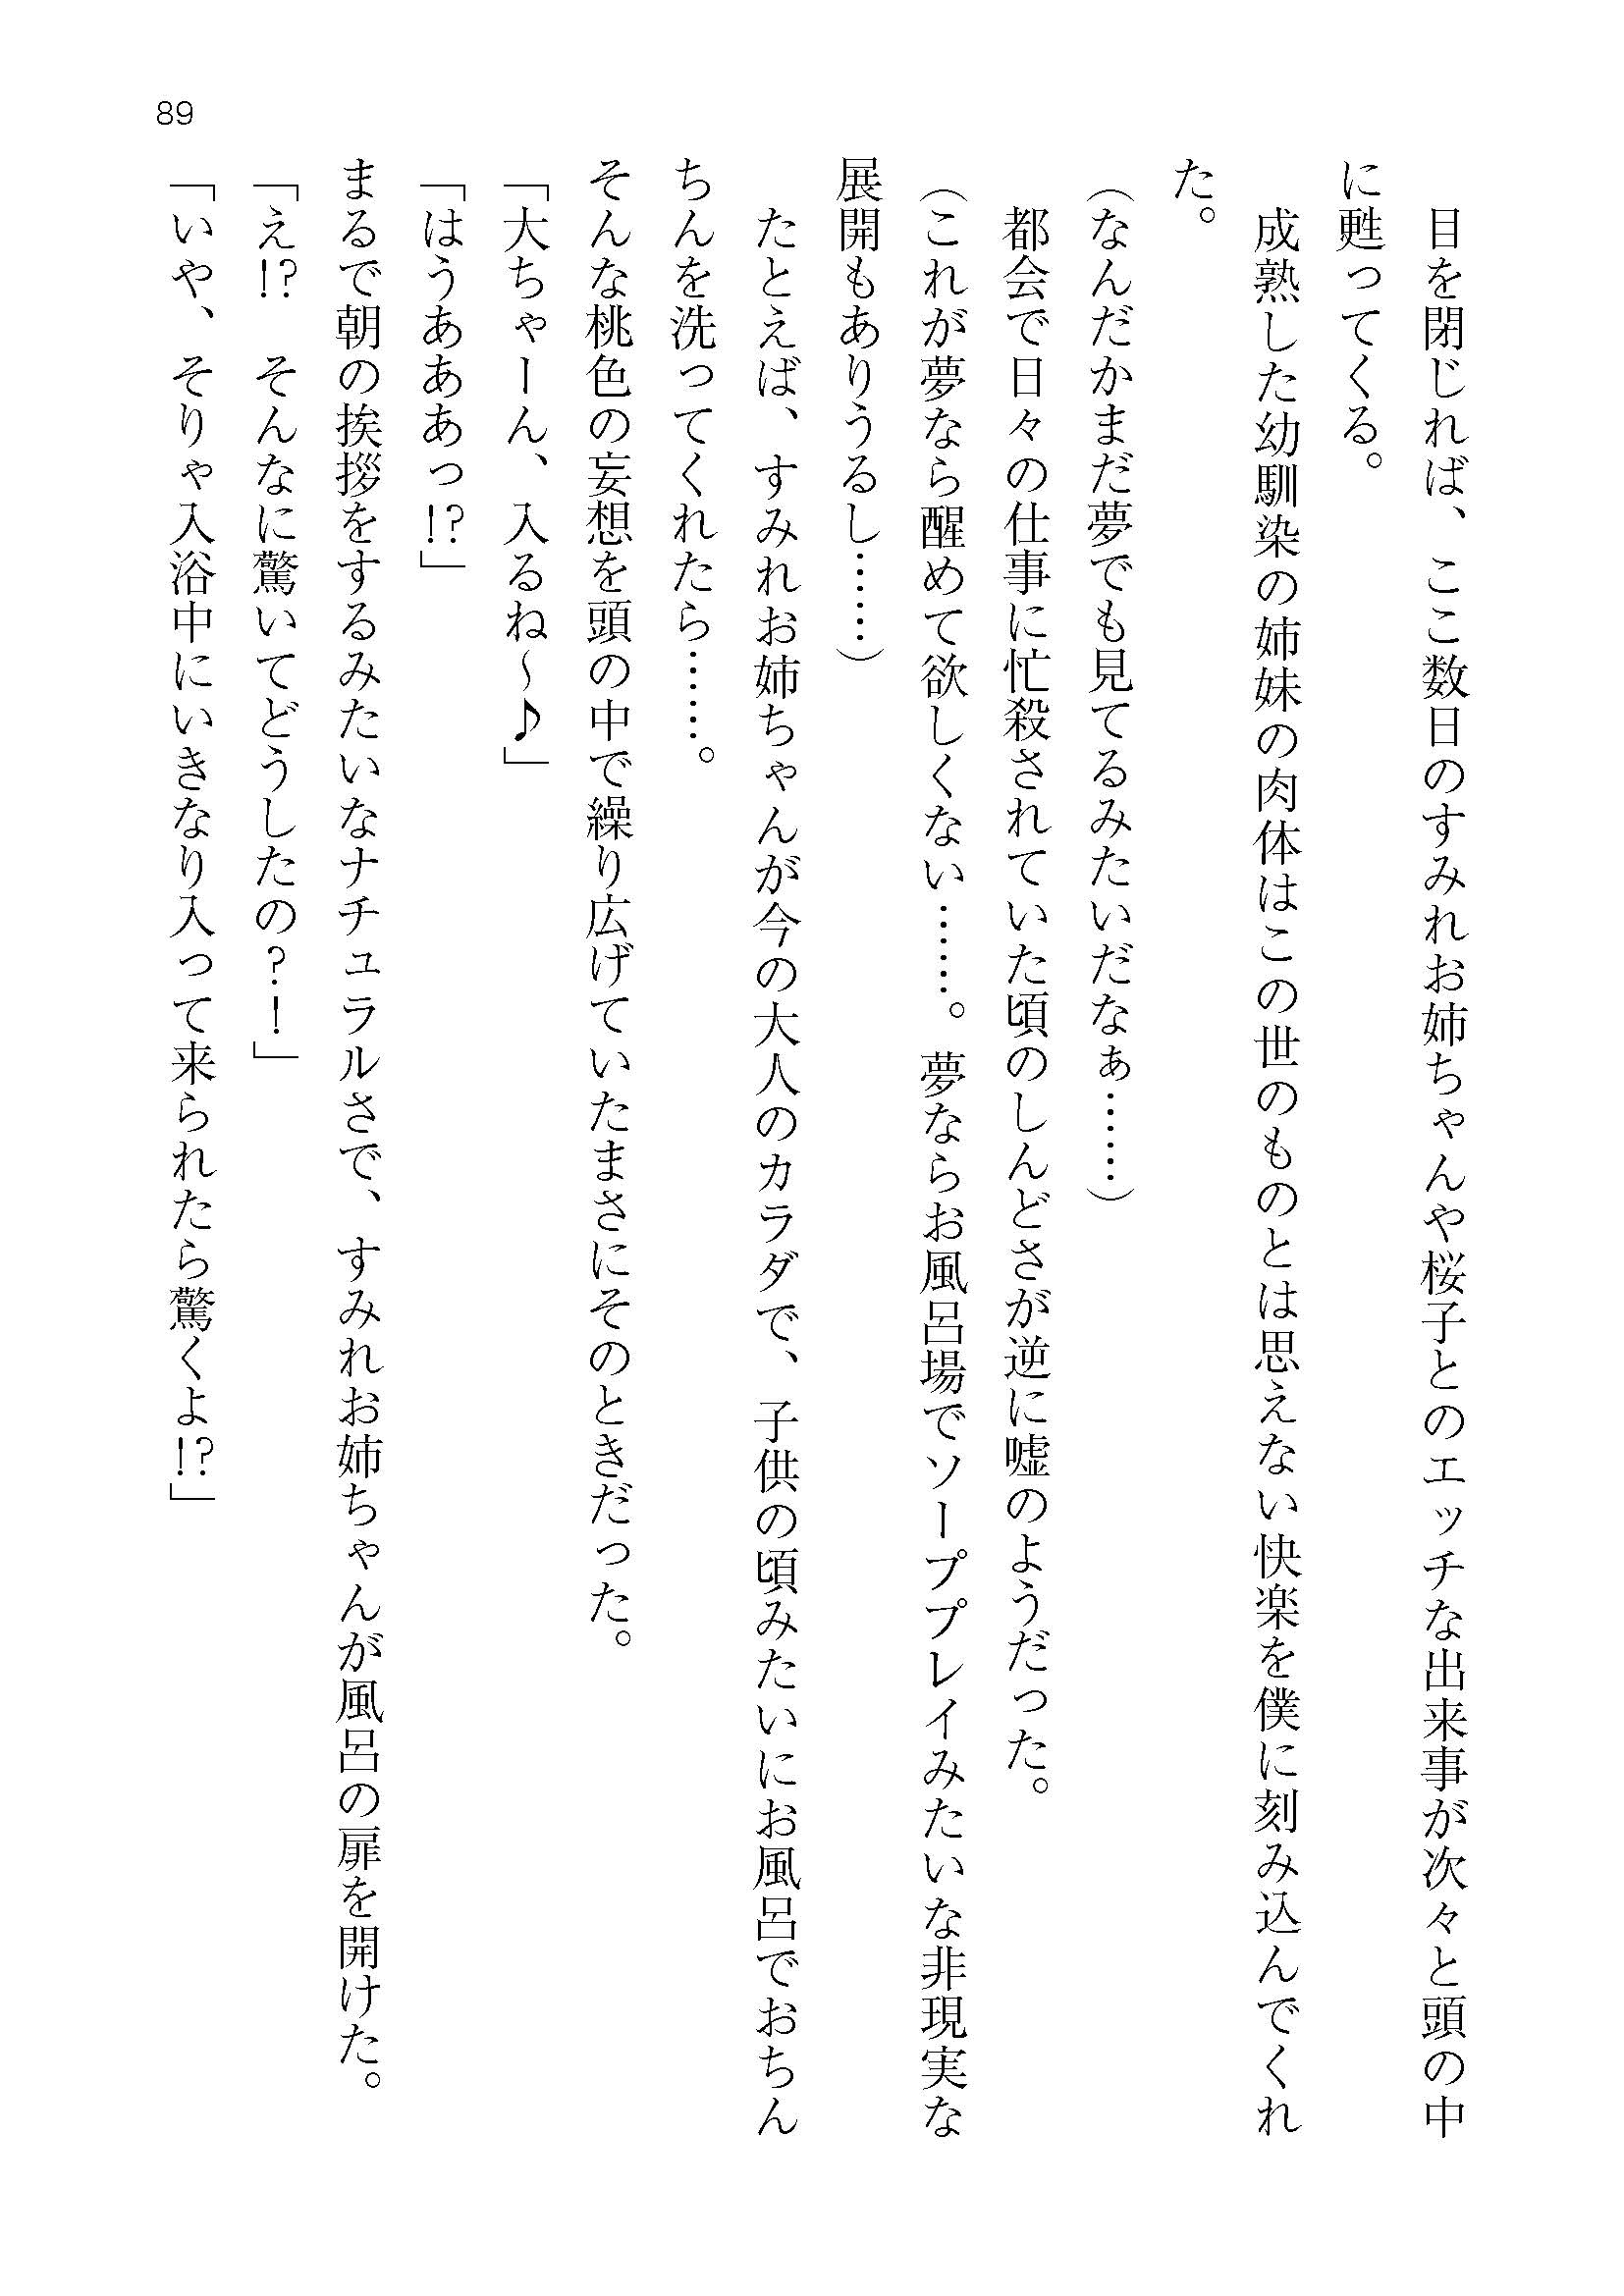 89
目を閉じれば、ここ数日のすみれお姉ちゃんや桜子とのエッチな出来事が次々と頭の中
に甦ってくる。
成熟した幼馴染の姉妹の肉体はこの世のものとは思えない快楽を僕に刻み込んでくれ
た。
（なんだかまだ夢でも見てるみたいだなぁ……）
都会で日々の仕事に忙殺されていた頃のしんどさが逆に嘘のようだった。
（これが夢なら醒めて欲しくない……。夢ならお風呂場でソーププレイみたいな非現実な
展開もありうるし……）
たとえば、すみれお姉ちゃんが今の大人のカラダで、子供の頃みたいにお風呂でおちん
ちんを洗ってくれたら……。
そんな桃色の妄想を頭の中で繰り広げていたまさにそのときだった。
「大ちゃーん、入るね～♪」
「はうあああっ!?」
まるで朝の挨拶をするみたいなナチュラルさで、すみれお姉ちゃんが風呂の扉を開けた。
「え!?　そんなに驚いてどうしたの?!」
「いや、そりゃ入浴中にいきなり入って来られたら驚くよ!?」